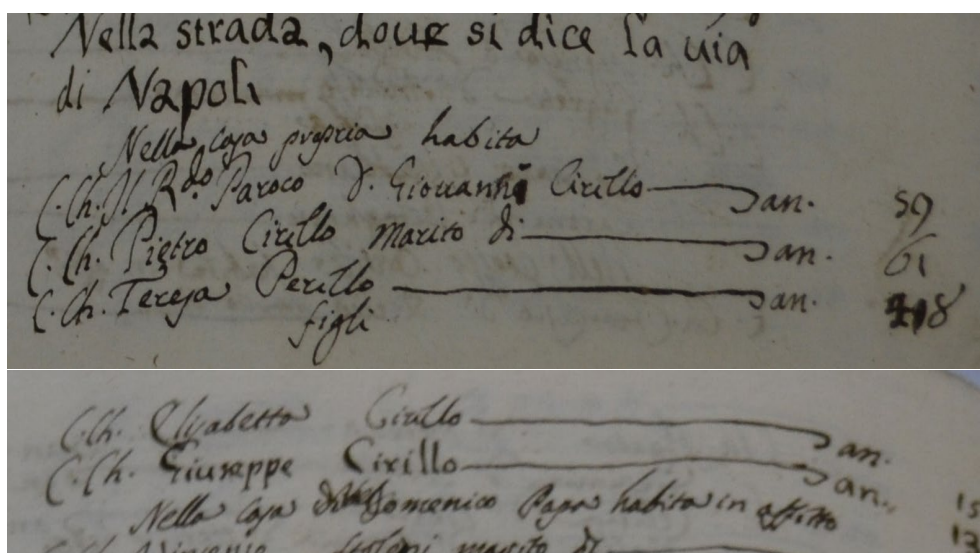 Nella strada, doue si dice la uia
di Napoli
Nella casa propria habita
C. Ch. Il R.do Paroco D. Giouanni Cirillo an. 59
C. Ch. Pietro Cirillo marito di an. 61
C. Ch. Teresa Perillo an. 48
figli
C. Ch. Elisabetta Cirillo an. 15
C. Ch. Giuseppe Cirillo an. 12
Nella casa di Domenico Papa habita in affitto
marito di